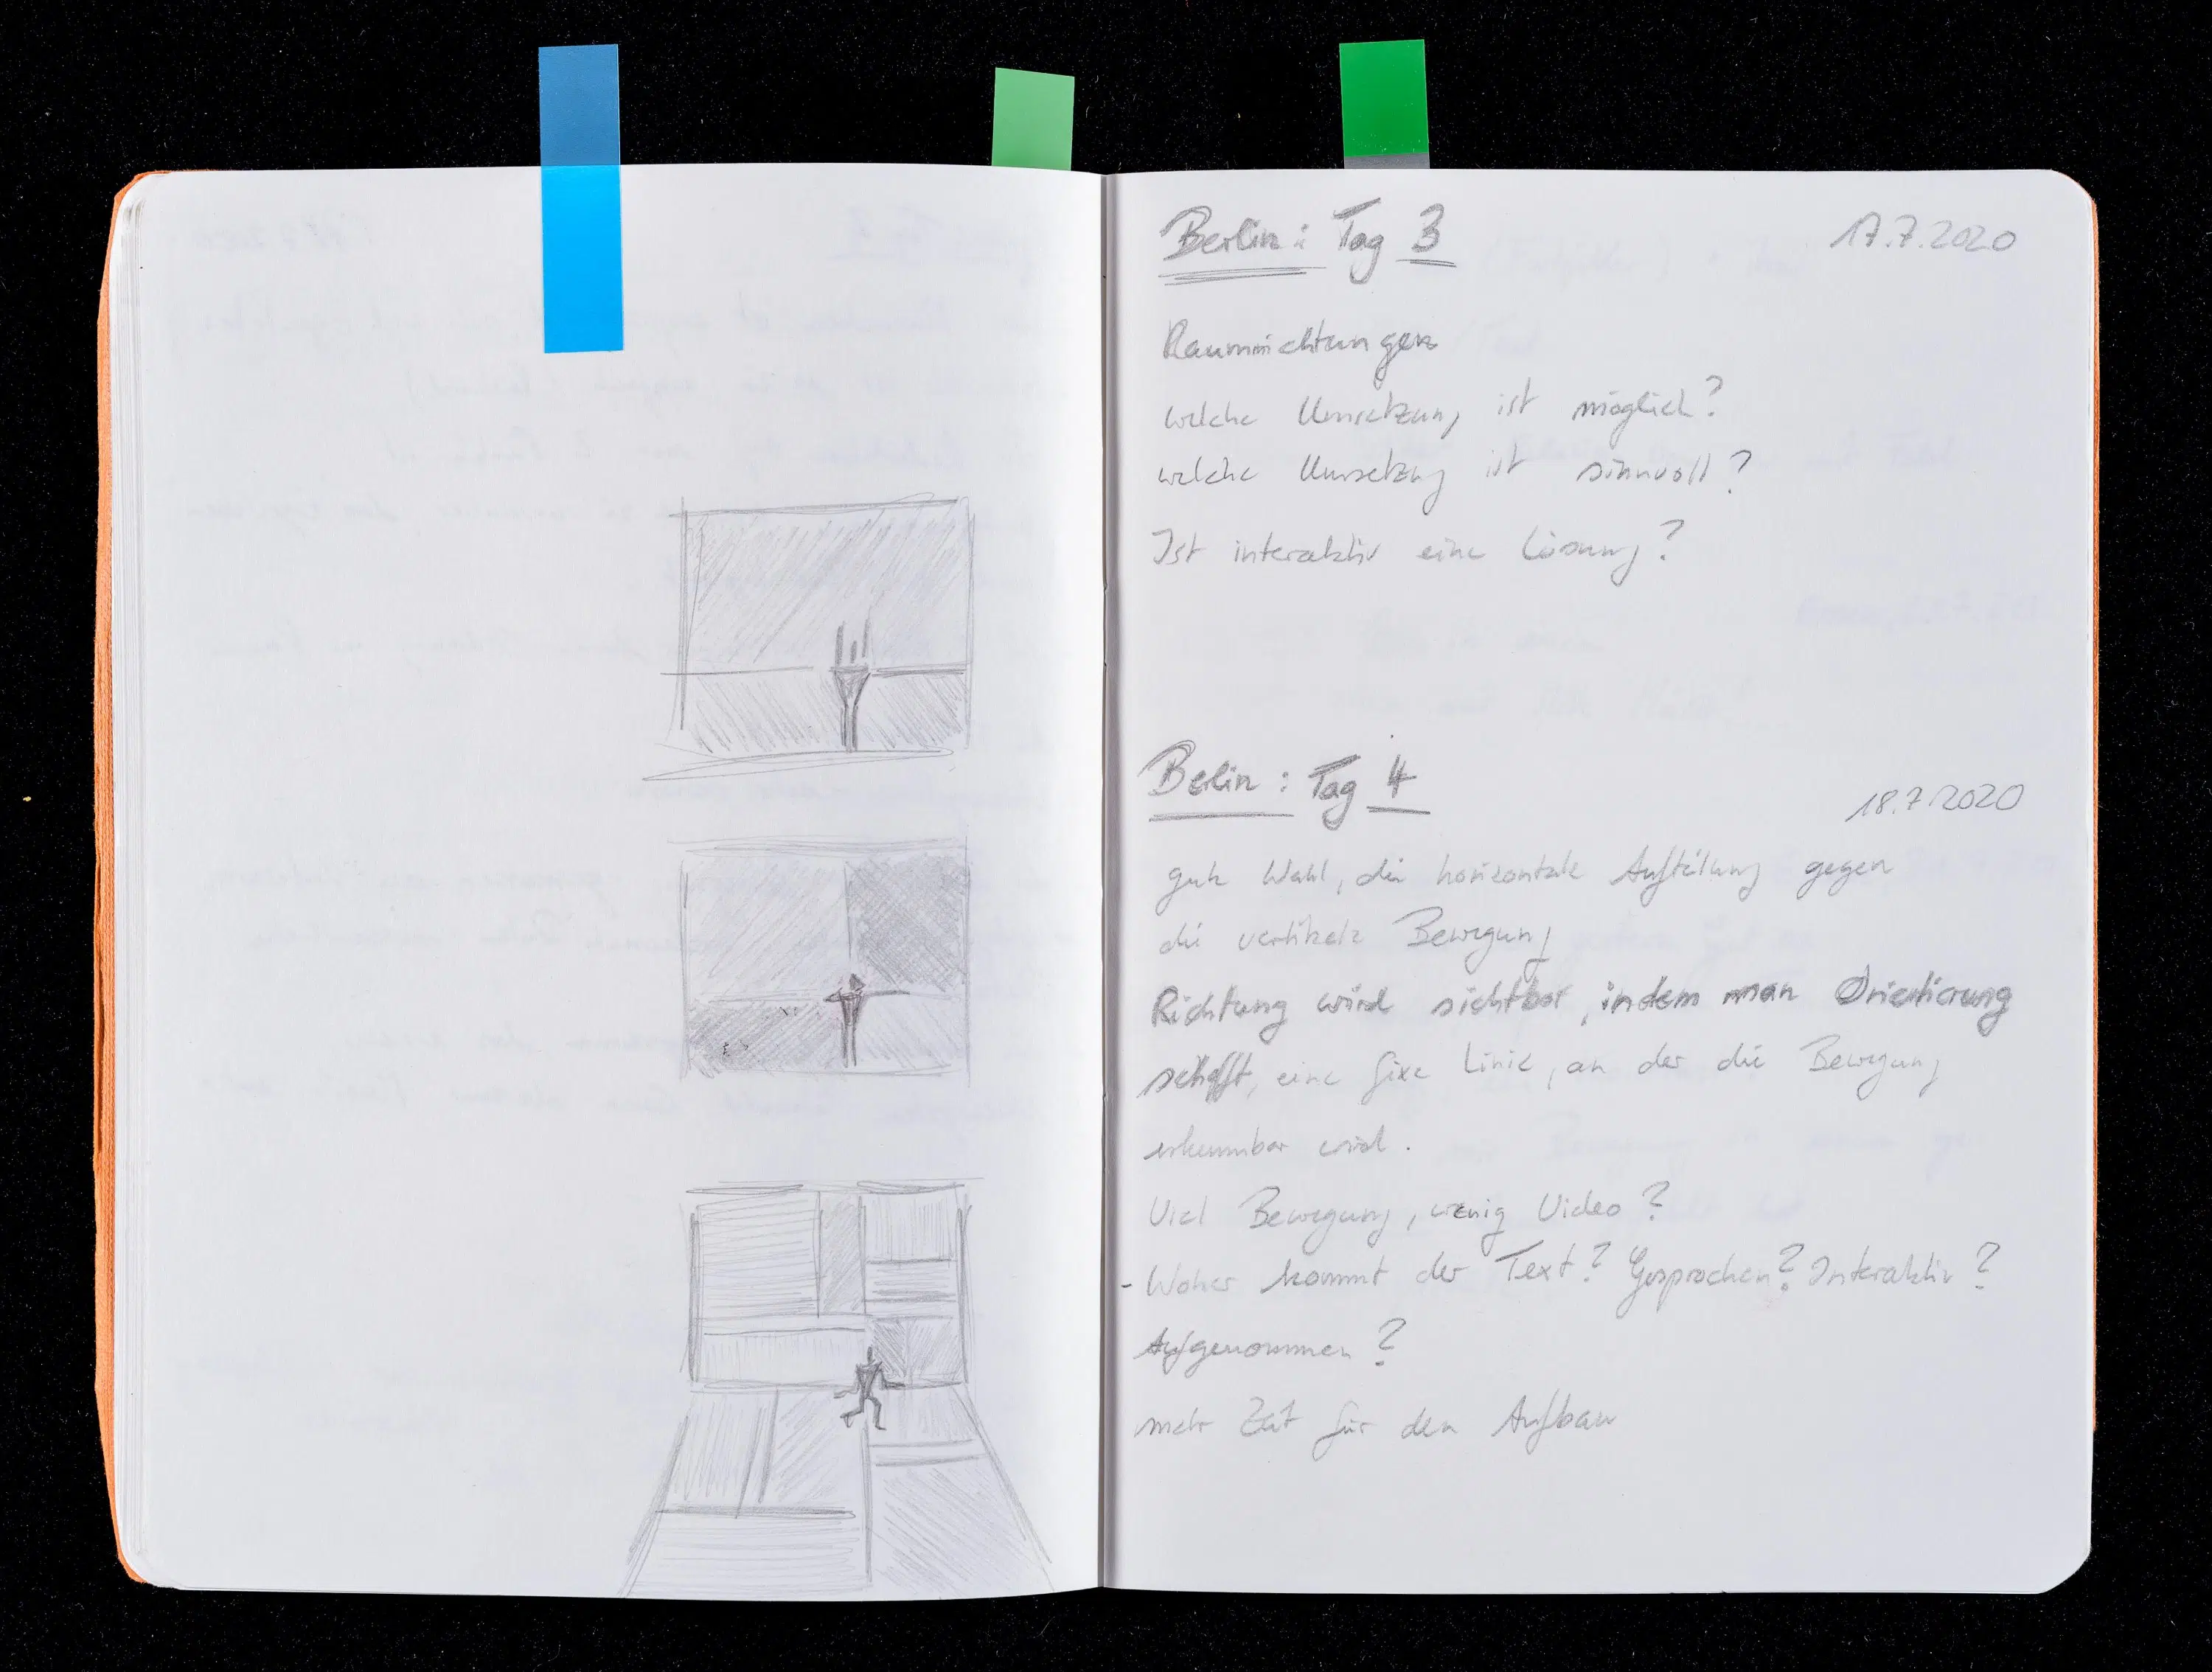 Berlin: Tag 3
17.7.2020
Raumrichtungen
welche Umsetzung ist möglich?
welche Umsetzung ist sinnvoll?
Ist interaktiv eine Lösung?
Berlin: Tag 4
18.7.2020
gute Wahl, die horizontale Aufteilung gegen
die vertikale Bewegung
Richtung wird sichtbar, indem man Orientierung
schafft, eine fixe Linie, an der die Bewegung
erkennbar wird.
Viel Bewegung, wenig Video?
- Woher kommt der Text? Gesprochen? Interaktiv?
Aufgenommen?
mehr Zeit für den Aufbau